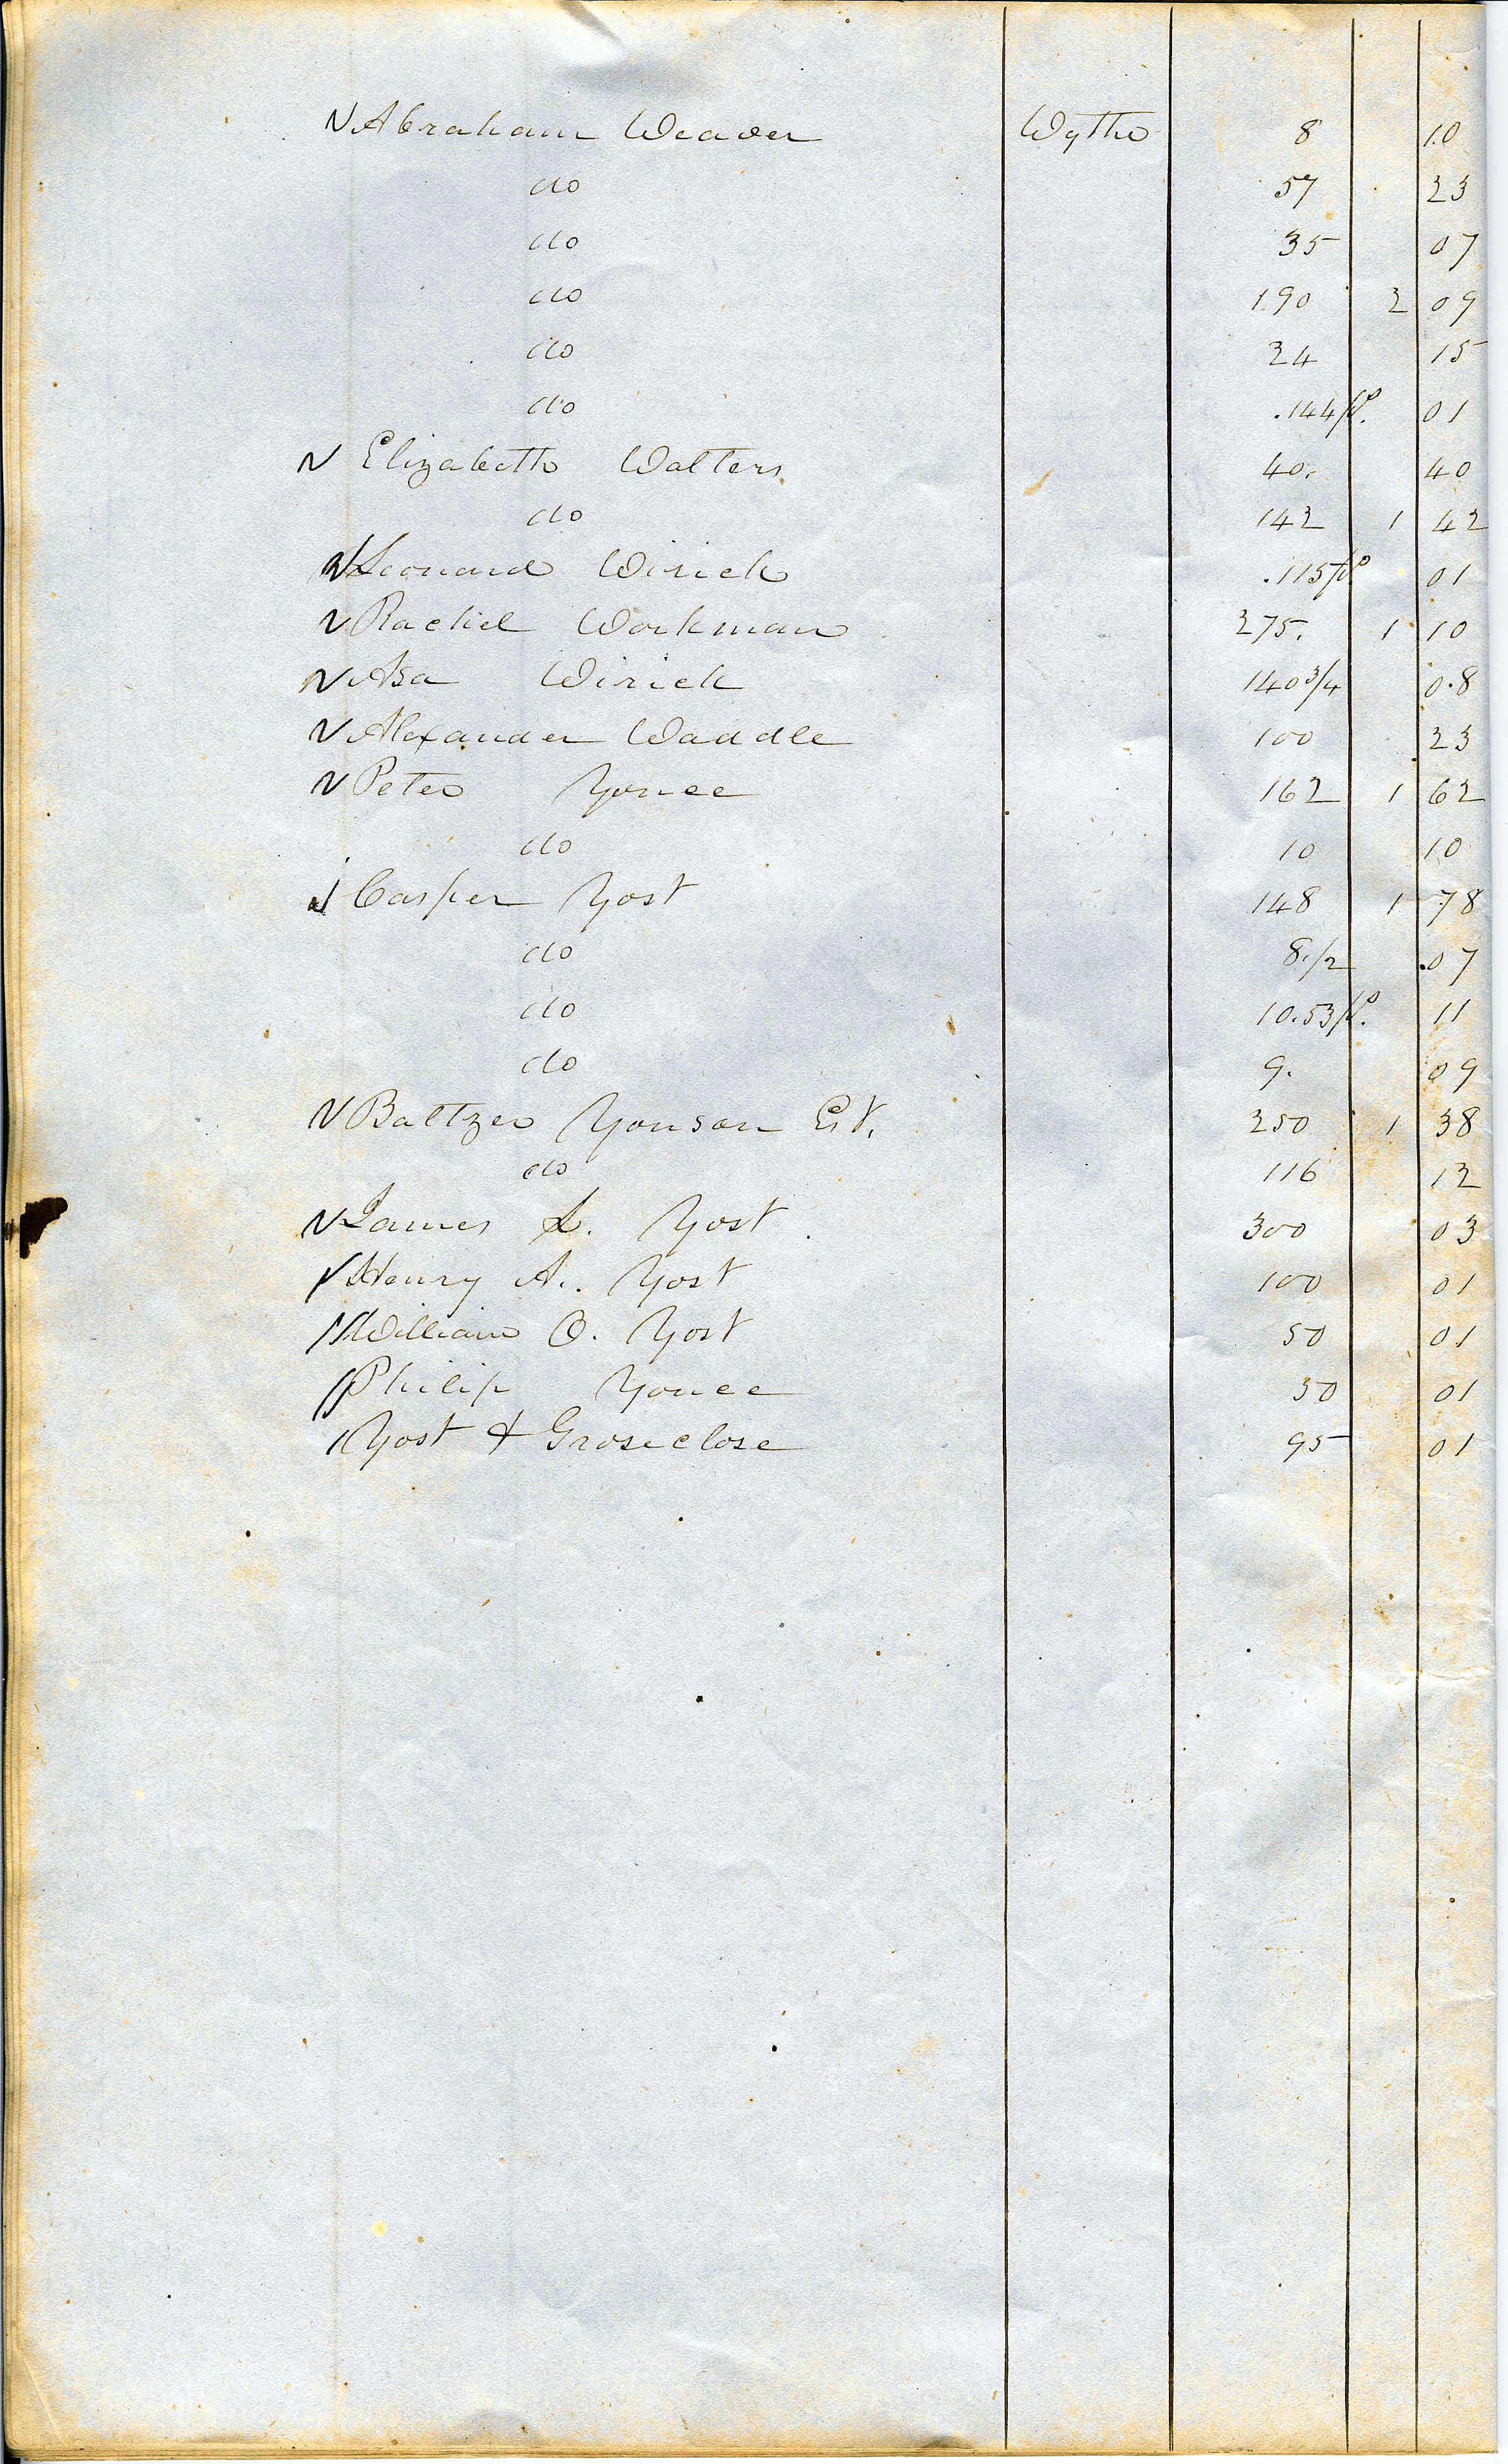 Abraham Weaver Wythe 8 10
do 57 23
do 35 07
do 190 2 09
do 24 15
do .144 p. 01
Elizabeth Walters 40. 40
do 142 1 42
Leonard Wirick .115 p 01
Rachel Workman 275. 1 10
Asa Wirick 140 3/4 0.8
Alexander Waddle 100 23
Peter Yonce 162 1 62
do 10 10
Casper Yost 148 1 78
do 8 1/2 .07
do 10.53 p. 11
do 9. 09
Baltzer Yonson Est. 250 1 38
do 116 12
James L. Yost 300 03
Henry A. Yost 100 01
William O. Yost 50 01
Philip Yonce 50 01
Yost & Groseclose 95 01